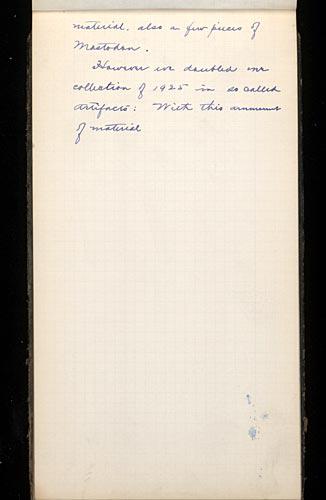 material, also a few pieces of
Mastodon.
However we doubled our
collection of 1925 in so called
artifacts: With this ammount
of material